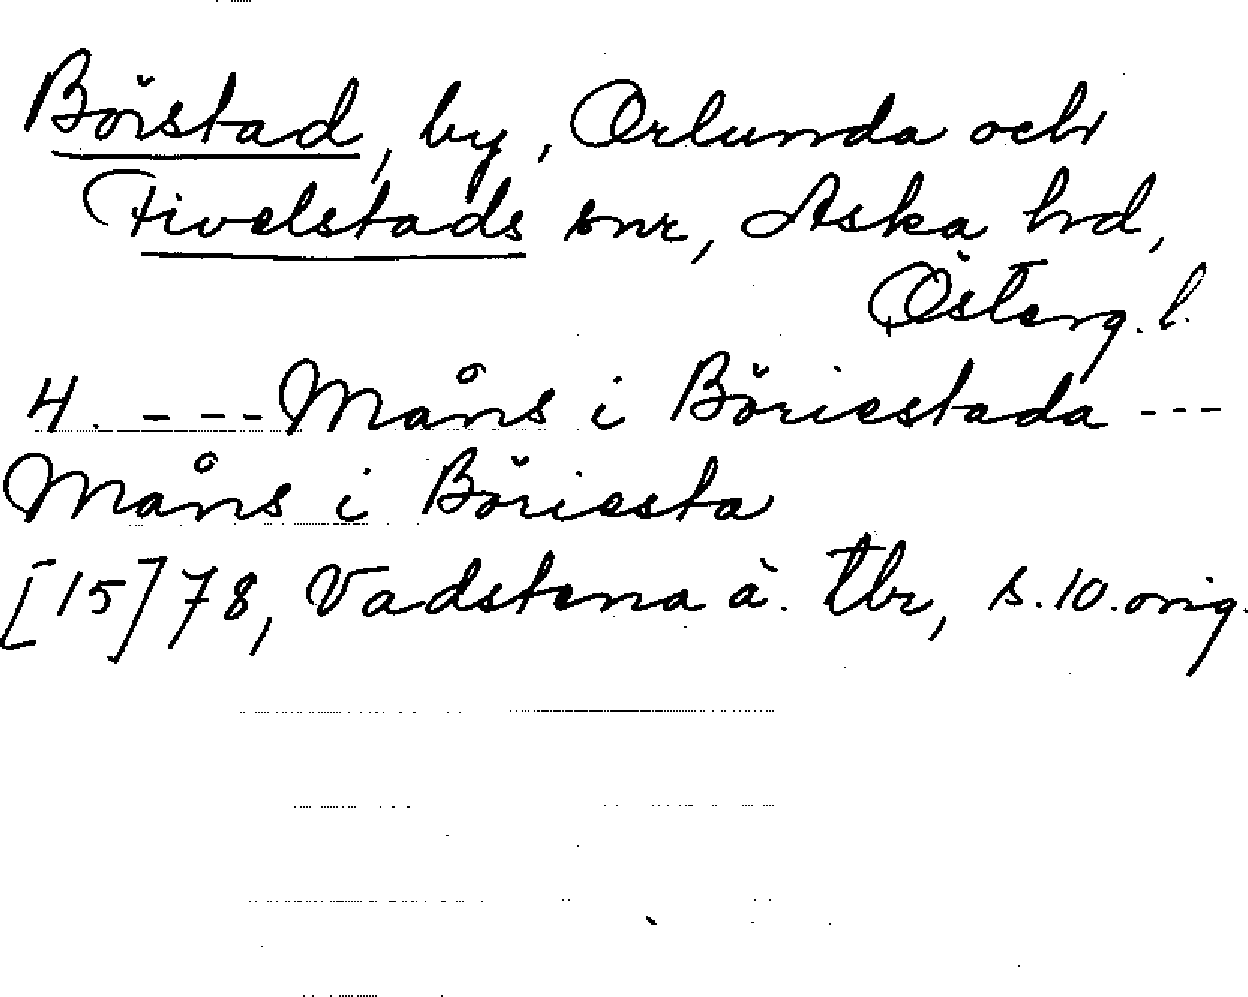 Börstad, by, Orlunda och
Fivelstads snr, Aska hrd,
Österg. l.
4. --- Måns i Böriestada ---
Måns i Böriesta
[15]78, Vadstena ä. tbr, s. 10. orig.